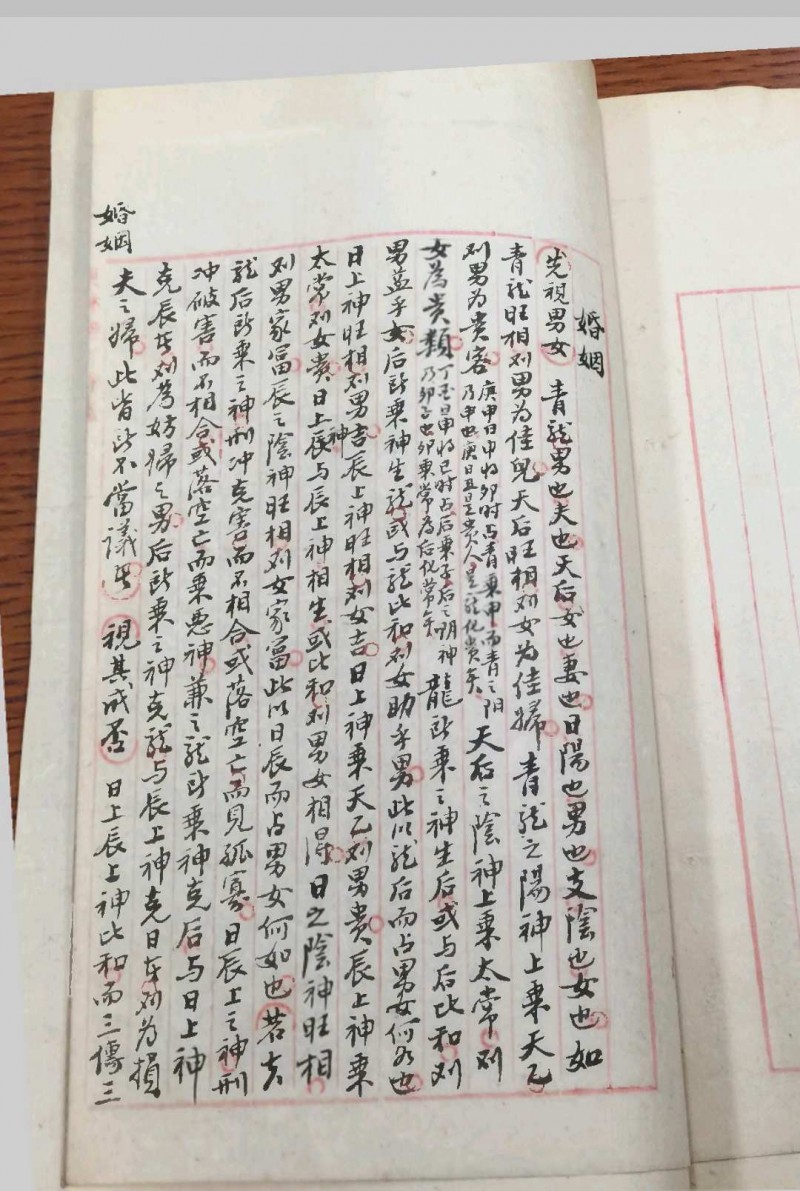 婚姻
先視男女　青龍男也夫也天后女也妻也日陽也男也支陰也女也如
青龍旺相刘男為佳兒天后旺相刘女為佳婦　青龍之陽神上乘天乙
刘男為貴客
庚申日申将卯时占青乘申而青之阳
乃申也庚日丑是贵人是龍化貴矣
天后之陰神上乘太常刘
女為贵類
将巳时占后乘子后之阴神
乃卯子也卯乘常為后化常矣
龍所乘之神生后或与后比和刘
男益乎女后所乘神生龍或与龍比和刘女助乎男此以龍后而占男女何如也
日上神旺相刘男吉辰上神旺相刘女吉日上神乘天乙刘男贵辰上神乘
太常刘女贵日上神与辰上神相生或比和刘男女相得日之陰神旺相
刘男家富辰之陰神旺相刘女家富此以日辰而占男女何如也若夫
龍后所乘之神刑冲克害而不相合或落空亡而見孤寡日辰上之神刑
冲破害而不相合或落空亡而乘惡神兼之龍所乘神克后与日上神
克辰女刘為妨婦之男后所乘之神克龍与辰上神克日女刘為損
夫之婦此皆所不當議者　視其成否　日上辰上神比和而三傳三
婚姻